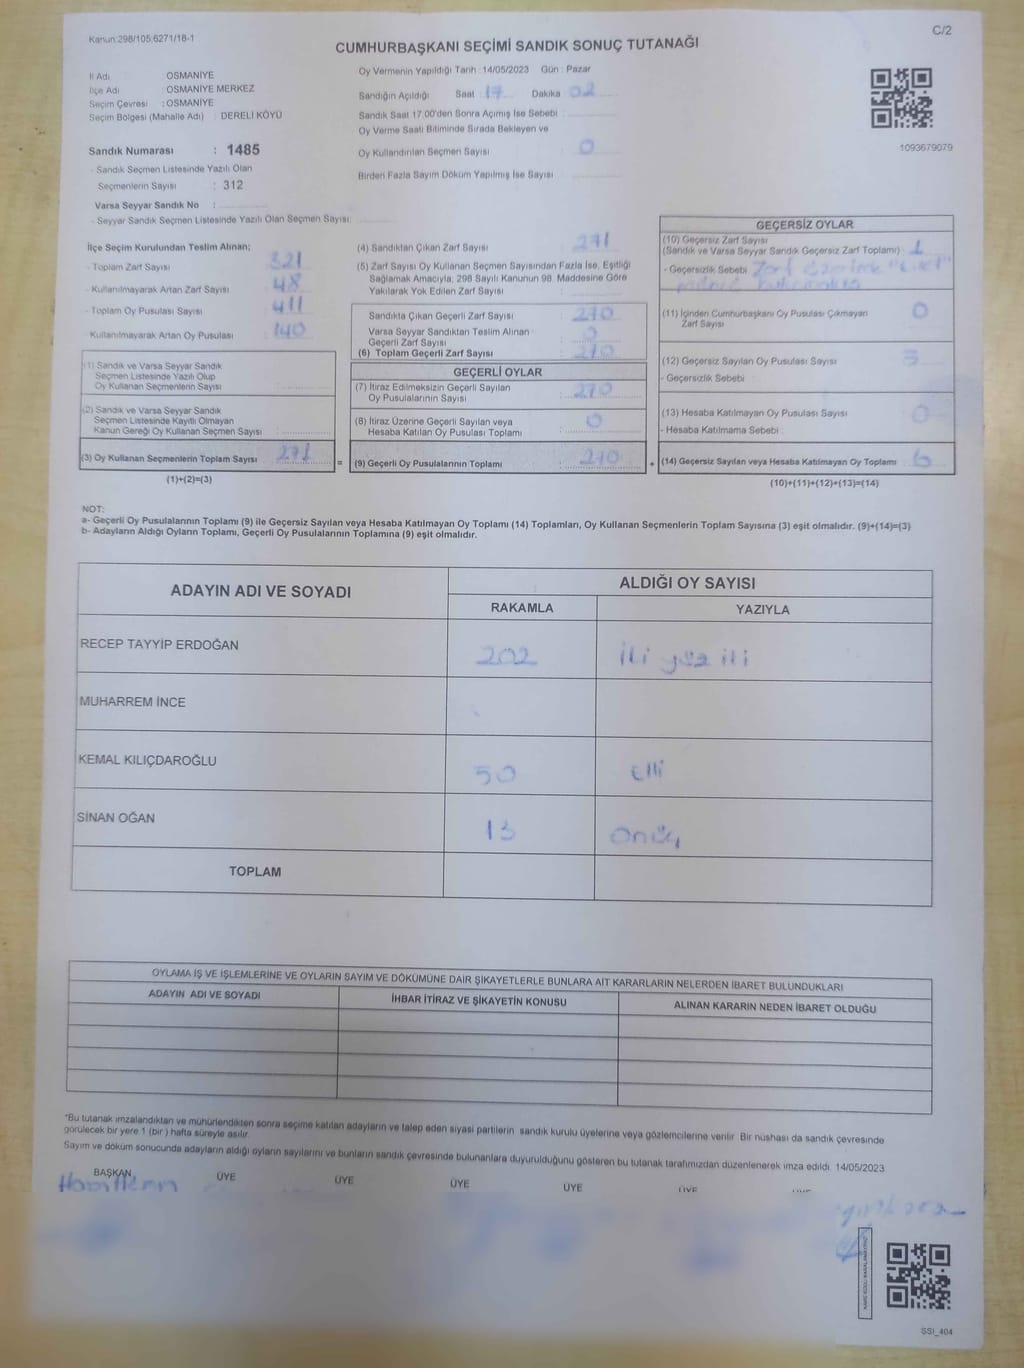 Kanun:298/105;6271/18-1
C/2
CUMHURBAŞKANI SEÇİMİ SANDIK SONUÇ TUTANAĞI
İl Adı OSMANİYE
İlçe Adı : OSMANİYE MERKEZ
Seçim Çevresi : OSMANİYE
Seçim Bölgesi (Mahalle Adı) : DERELİ KÖYÜ
Sandık Numarası : 1485
- Sandık Seçmen Listesinde Yazılı Olan
Seçmenlerin Sayısı : 312
Varsa Seyyar Sandık No :
- Seyyar Sandık Seçmen Listesinde Yazılı Olan Seçmen Sayısı:
Oy Vermenin Yapıldığı Tarih :14/05/2023 Gün : Pazar
Sandığın Açıldığı Saat : 17 Dakika : 02
Sandık Saat 17.00'den Sonra Açılmış İse Sebebi :
Oy Verme Saati Bitiminde Sırada Bekleyen ve
Oy Kullandırılan Seçmen Sayısı : 0
Birden Fazla Sayım Döküm Yapılmış İse Sayısı :
1093679079
İlçe Seçim Kurulundan Teslim Alınan;
- Toplam Zarf Sayısı : 321
- Kullanılmayarak Artan Zarf Sayısı : 48
- Toplam Oy Pusulası Sayısı : 411
Kullanılmayarak Artan Oy Pusulası : 140
(1) Sandık ve Varsa Seyyar Sandık
Seçmen Listesinde Yazılı Olup
Oy Kullanan Seçmenlerin Sayısı :
(2) Sandık ve Varsa Seyyar Sandık
Seçmen Listesinde Kayıtlı Olmayan
Kanun Gereği Oy Kullanan Seçmen Sayısı :
(3) Oy Kullanan Seçmenlerin Toplam Sayısı : 271
(1)+(2)=(3)
(4) Sandıktan Çıkan Zarf Sayısı : 271
(5) Zarf Sayısı Oy Kullanan Seçmen Sayısından Fazla İse, Eşitliği
Sağlamak Amacıyla, 298 Sayılı Kanunun 98. Maddesine Göre
Yakılarak Yok Edilen Zarf Sayısı :
Sandıkta Çıkan Geçerli Zarf Sayısı : 270
Varsa Seyyar Sandıktan Teslim Alınan
Geçerli Zarf Sayısı : 0
(6) Toplam Geçerli Zarf Sayısı : 270
GEÇERLİ OYLAR
(7) İtiraz Edilmeksizin Geçerli Sayılan
Oy Pusulalarının Sayısı : 270
(8) İtiraz Üzerine Geçerli Sayılan veya
Hesaba Katılan Oy Pusulası Toplamı : 0
= (9) Geçerli Oy Pusulalarının Toplamı : 270
GEÇERSİZ OYLAR
(10) Geçersiz Zarf Sayısı
(Sandık ve Varsa Seyyar Sandık Geçersiz Zarf Toplamı) : 1
- Geçersizlik Sebebi : Zarf üzerinde "Evet"
(11) İçinden Cumhurbaşkanı Oy Pusulası Çıkmayan
Zarf Sayısı 0
(12) Geçersiz Sayılan Oy Pusulası Sayısı : 5
- Geçersizlik Sebebi :
(13) Hesaba Katılmayan Oy Pusulası Sayısı : 0
- Hesaba Katılmama Sebebi :
+ (14) Geçersiz Sayılan veya Hesaba Katılmayan Oy Toplamı : 6
(10)+(11)+(12)+(13)=(14)
NOT:
a- Geçerli Oy Pusulalarının Toplamı (9) ile Geçersiz Sayılan veya Hesaba Katılmayan Oy Toplamı (14) Toplamları, Oy Kullanan Seçmenlerin Toplam Sayısına (3) eşit olmalıdır. (9)+(14)=(3)
b- Adayların Aldığı Oyların Toplamı, Geçerli Oy Pusulalarının Toplamına (9) eşit olmalıdır.
ADAYIN ADI VE SOYADI
ALDIĞI OY SAYISI
RAKAMLA YAZIYLA
RECEP TAYYİP ERDOĞAN 202 iki yüz iki
MUHARREM İNCE
KEMAL KILIÇDAROĞLU 50 Elli
SİNAN OĞAN 13 onüç
TOPLAM
OYLAMA İŞ VE İŞLEMLERİNE VE OYLARIN SAYIM VE DÖKÜMÜNE DAİR ŞİKAYETLERLE BUNLARA AİT KARARLARIN NELERDEN İBARET BULUNDUKLARI
ADAYIN ADI VE SOYADI İHBAR İTİRAZ VE ŞİKAYETİN KONUSU ALINAN KARARIN NEDEN İBARET OLDUĞU
*Bu tutanak imzalandıktan ve mühürlendikten sonra seçime katılan adayların ve talep eden siyasi partilerin sandık kurulu üyelerine veya gözlemcilerine verilir. Bir nüshası da sandık çevresinde
görülecek bir yere 1 (bir) hafta süreyle asılır.
Sayım ve döküm sonucunda adayların aldığı oyların sayılarını ve bunların sandık çevresinde bulunanlara duyurulduğunu gösteren bu tutanak tarafımızdan düzenlenerek imza edildi. 14/05/2023
BAŞKAN ÜYE ÜYE ÜYE ÜYE ÜYE
SSI_404